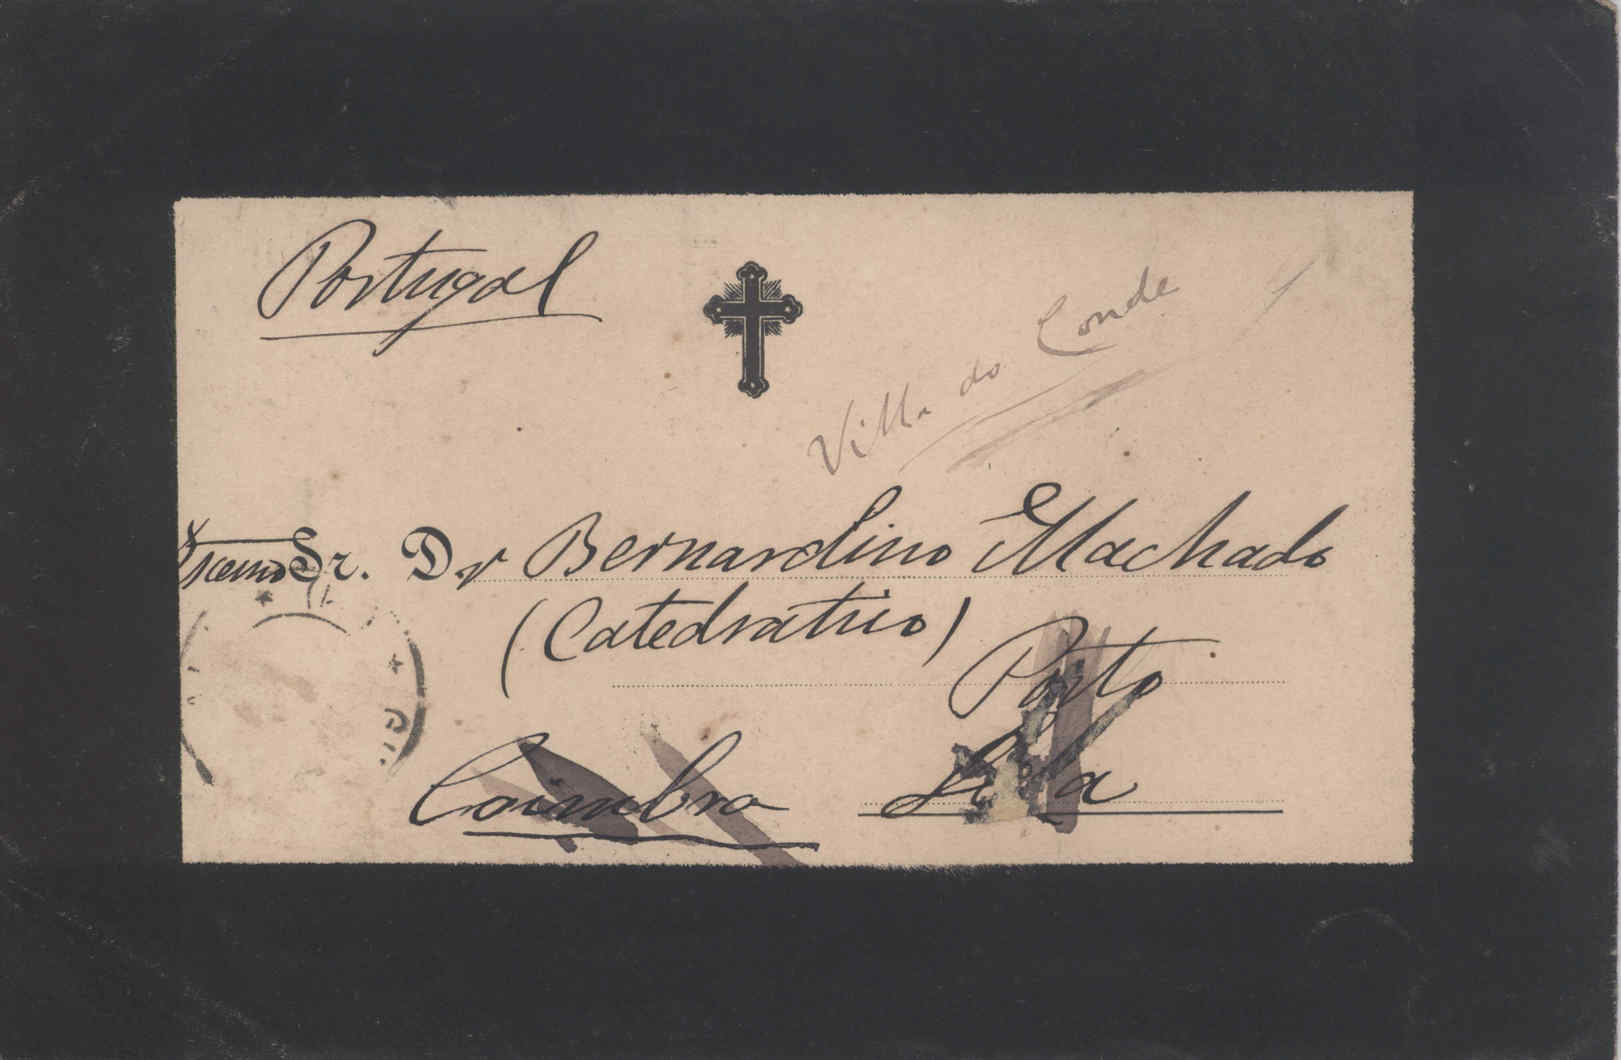 Portugal
Villa do Conde
Excmo Sr. Dr Bernardino Machado
(Catedratico)
Porto
Coimbra